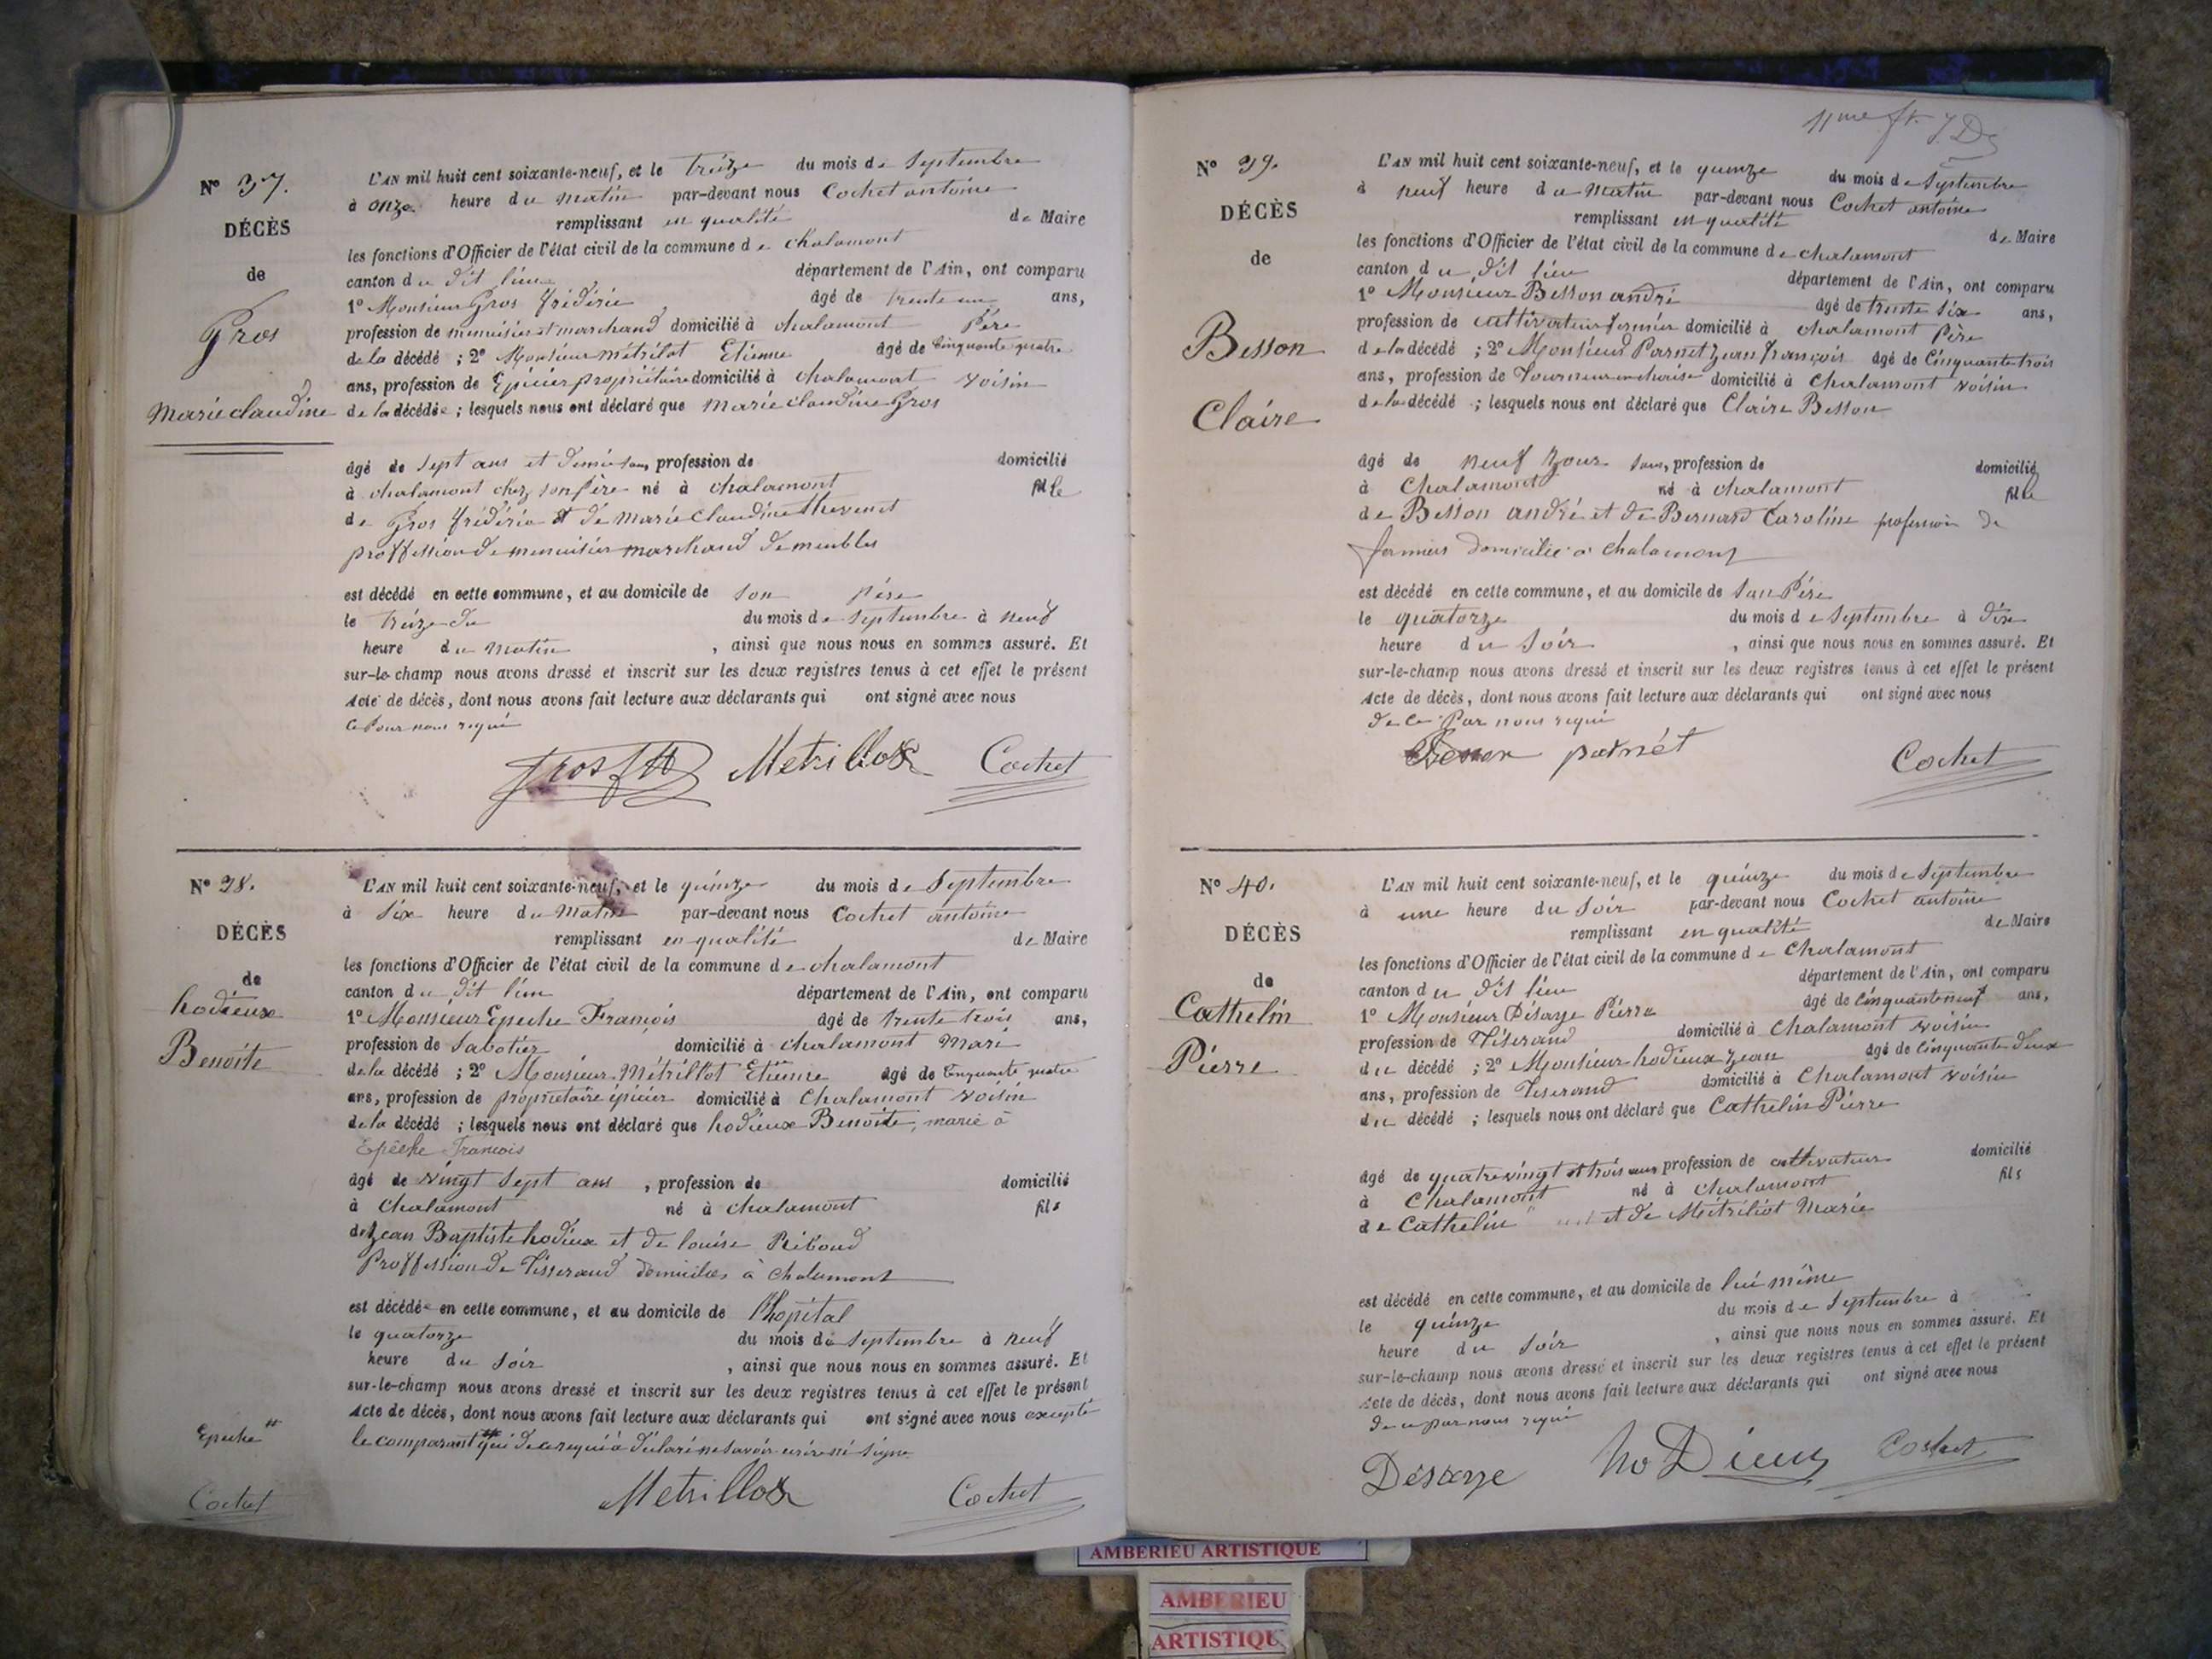 N° 37.
DÉCÈS
de
Gros
Marie claudine
L'AN mil huit cent soixante-neuf, et le treize du mois de Septembre
à onze heure du matin par-devant nous Cochet antoine
remplissant en qualité de Maire
les fonctions d'Officier de l'état civil de la commune de chalamont
canton du dit lieu département de l'Ain, ont comparu
1° Monsieur Gros frédéric âgé de trente un ans,
profession de menuisier et marchand domicilié à chalamont Père
de la décédé ; 2° Monsieur métrillot Etienne âgé de Cinquante quatre
ans, profession de Epicier propriétaire domicilié à chalamont voisin
de la décédée ; lesquels nous ont déclaré que Marie claudine Gros
âgé de Sept ans et demie ans, profession de domicilié
à chalamont chez son père né à chalamont fille
de Gros frédéric et de Marie Claudine thevenet
proffession de menuisier marchand de meubles
est décédé en cette commune, et au domicile de son père
le treize du du mois de Septembre à neuf
heure du matin , ainsi que nous nous en sommes assuré. Et
sur-le-champ nous avons dressé et inscrit sur les deux registres tenus à cet effet le présent
Acte de décès, dont nous avons fait lecture aux déclarants qui ont signé avec nous
ce Pour nous requi
Gros Metrillot Cochet
N° 38.
DÉCÈS
de
hodieux
Benoite
L'AN mil huit cent soixante-neuf, et le quinze du mois de Septembre
à Six heure du Matin par-devant nous Cochet antoine
remplissant en qualité de Maire
les fonctions d'Officier de l'état civil de la commune de chalamont
canton du dit lieu département de l'Ain, ont comparu
1° Monsieur Epeche François âgé de trente trois ans,
profession de Sabotier domicilié à chalamont Mari
de la décédé ; 2° Monsieur Métrillot Etienne âgé de Cinquante quatre
ans, profession de propriétaire épicier domicilié à Chalamont voisin
de la décédé ; lesquels nous ont déclaré que hodieux Benoite, marié à
Epêche François
âgé de vingt Sept ans , profession de domicilié
à Chalamont né à chalamont fils
de Jean Baptiste hodieux et de louise Riboud
Proffession de Tisserand domiciliés à Chalamont
est décédée en cette commune, et au domicile de l'hopital
le quatorze du mois de Septembre à neuf
heure du Soir , ainsi que nous nous en sommes assuré. Et
sur-le-champ nous avons dressé et inscrit sur les deux registres tenus à cet effet le présent
Acte de décès, dont nous avons fait lecture aux déclarants qui ont signé avec nous excepté
le comparant qui de ce requi à déclaré ne savoir écrire ni signe
Epeche
Cochet
Metrillot Cochet
11me ft.
N° 39.
DÉCÈS
de
Besson
Claire
L'AN mil huit cent soixante-neuf, et le quinze du mois de Septembre
à neuf heure du Matin par-devant nous Cochet antoine
remplissant en qualité de Maire
les fonctions d'Officier de l'état civil de la commune de chalamont
canton du dit lieu département de l'Ain, ont comparu
1° Monsieur Besson andré âgé de trente Six ans,
profession de cultivateur fermier domicilié à chalamont Père
de la décédé ; 2° Monsieur Parnet Jean françois âgé de Cinquante trois
ans, profession de Tourneur en chaise domicilié à Chalamont voisin
de la décédé ; lesquels nous ont déclaré que Claire Besson
âgé de neuf Jour ans, profession de domicilié
à Chalamont né à chalamont fille
de Besson andré et de Bernard Caroline profession de
fermiers domicilié à Chalamont
est décédé en cette commune, et au domicile de Son Père
le quatorze du mois de Septembre à dix
heure du Soir , ainsi que nous nous en sommes assuré. Et
sur-le-champ nous avons dressé et inscrit sur les deux registres tenus à cet effet le présent
Acte de décès, dont nous avons fait lecture aux déclarants qui ont signé avec nous
de ce Par nous requi
Besson parnét Cochet
N° 40.
DÉCÈS
de
Cathelin
Pierre
L'AN mil huit cent soixante-neuf, et le quinze du mois de Septembre
à une heure du Soir par-devant nous Cochet antoine
remplissant en qualité de Maire
les fonctions d'Officier de l'état civil de la commune de Chalamont
canton du dit lieu département de l'Ain, ont comparu
1° Monsieur Désaye Pierre âgé de Cinquante neuf ans,
profession de Tiserand domicilié à Chalamont voisin
du décédé ; 2° Monsieur hodieux Jean âgé de Cinquante deux
ans, profession de Tiserand domicilié à Chalamont voisin
du décédé ; lesquels nous ont déclaré que Cathelin Pierre
âgé de quatre vingt et trois ans profession de cultivateur domicilié
à Chalamont né à chalamont fils
de Cathelin et de Métriliot Marie
est décédé en cette commune, et au domicile de lui même
le quinze du mois de Septembre à
heure du Soir , ainsi que nous nous en sommes assuré. Et
sur-le-champ nous avons dressé et inscrit sur les deux registres tenus à cet effet le présent
Acte de décès, dont nous avons fait lecture aux déclarants qui ont signé avec nous
de ce par nous requi
Désaye hodieux Cochet
AMBERIEU ARTISTIQUE
AMBERIEU
ARTISTIQU